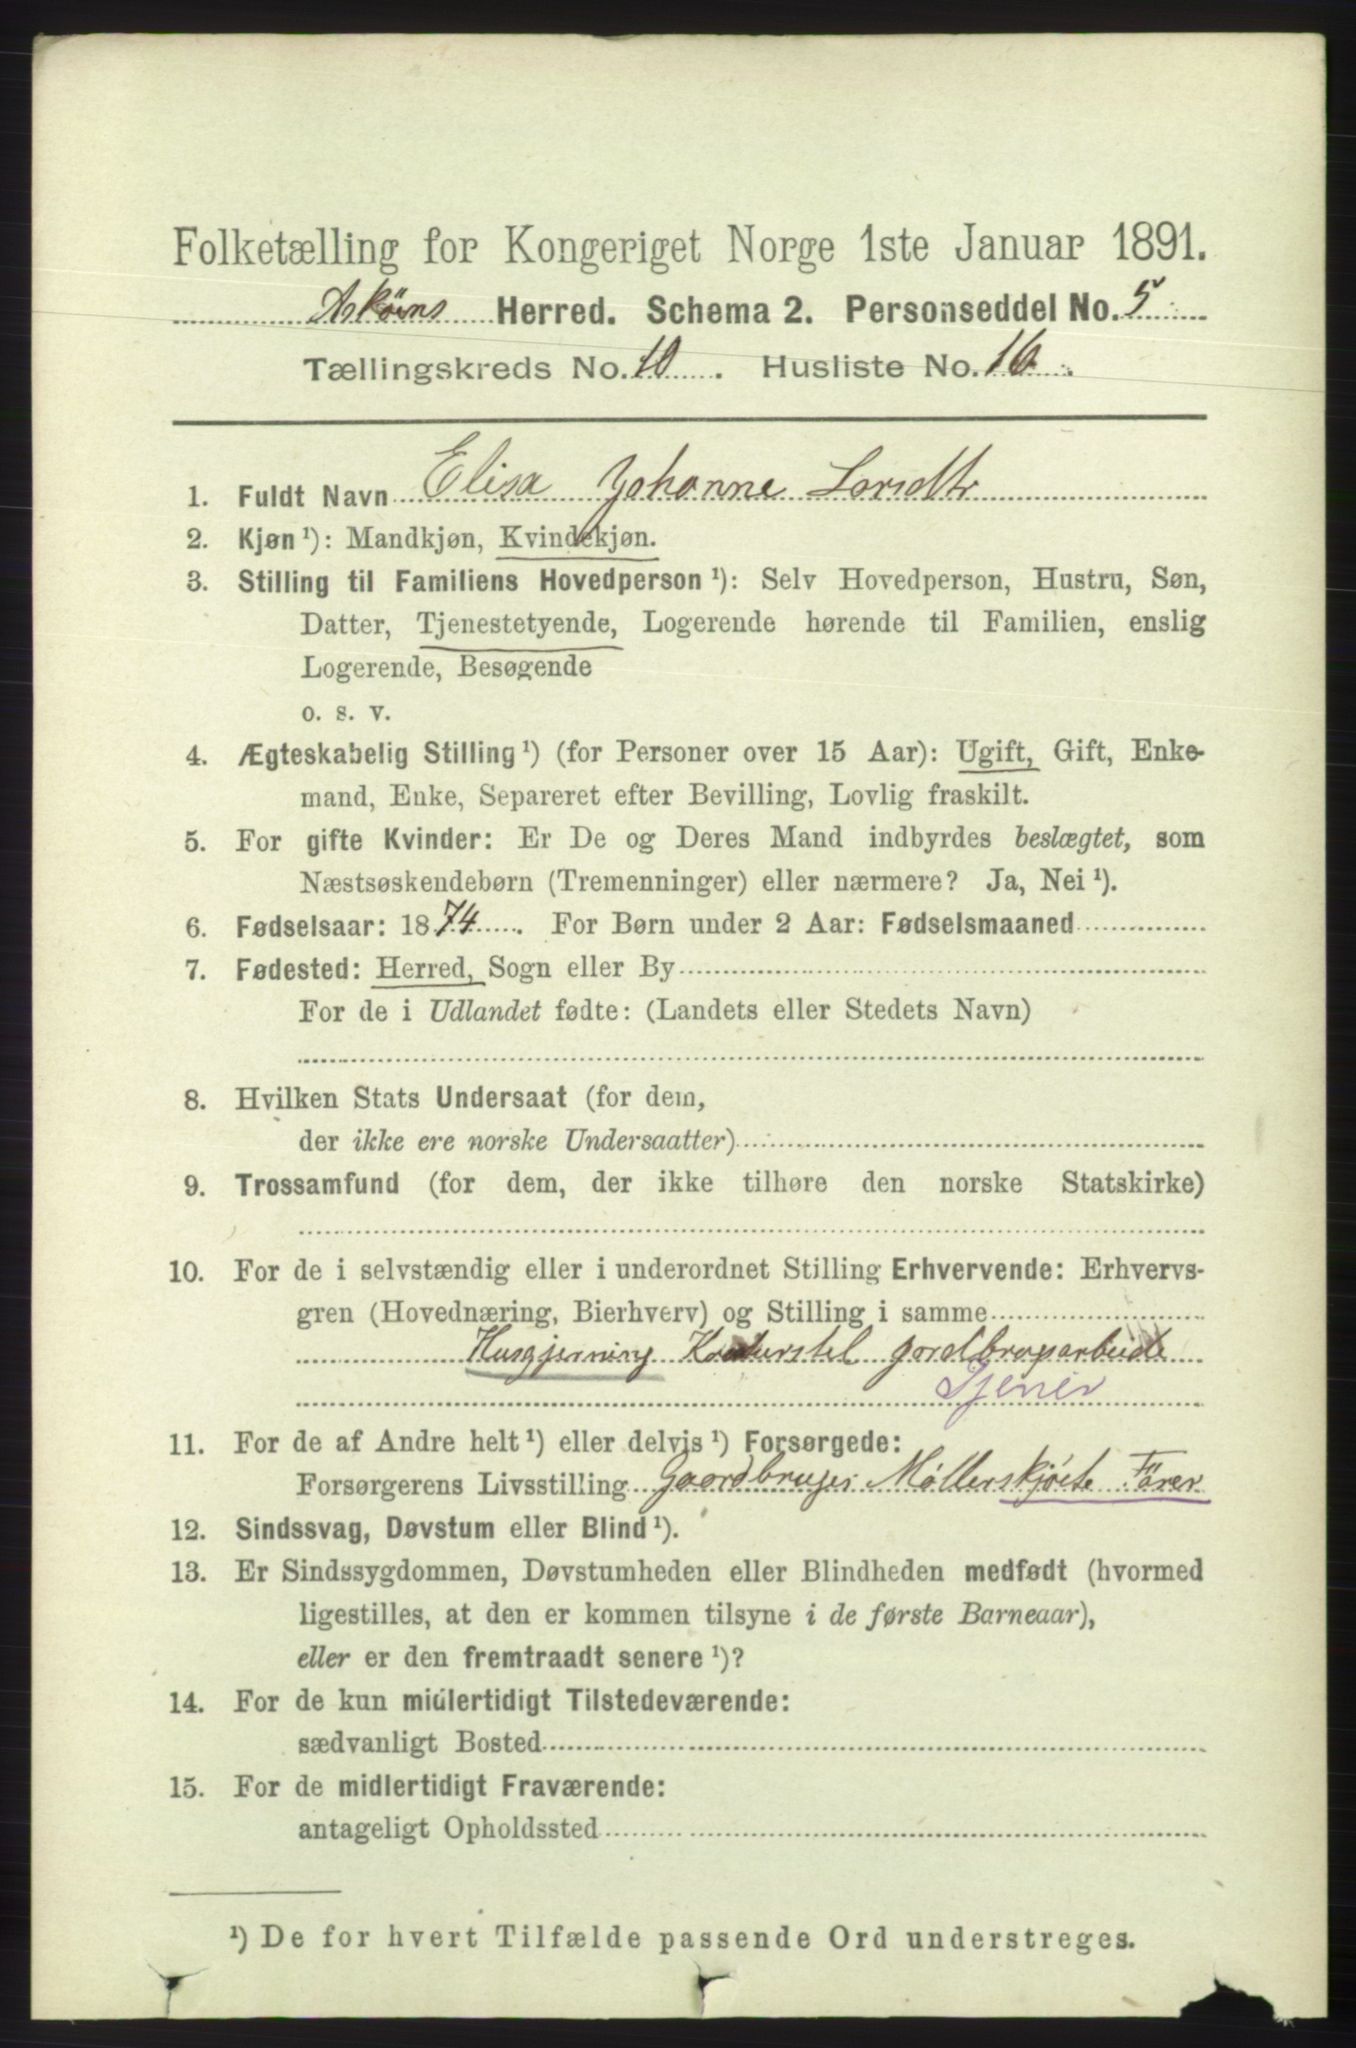 Folketælling for Kongeriget Norge 1ste Januar 1891.
Askøens Herred. Schema 2. Personseddel No. 5
Tællingskreds No. 10. Husliste No. 16.
1. Fuldt Navn Elisa Johanne Larsdtr
2. Kjøn ¹): Mandkjøn, Kvindekjøn.
3. Stilling til Familiens Hovedperson ¹): Selv Hovedperson, Hustru, Søn,
Datter, Tjenestetyende, Logerende hørende til Familien, enslig
Logerende, Besøgende
o. s. v.
4. Ægteskabelig Stilling ¹) (for Personer over 15 Aar): Ugift, Gift, Enke-
mand, Enke, Separeret efter Bevilling, Lovlig fraskilt.
5. For gifte Kvinder: Er De og Deres Mand indbyrdes beslægtet, som
Næstsøskendebørn (Tremenninger) eller nærmere? Ja, Nei ¹).
6. Fødselsaar: 1874. For Børn under 2 Aar: Fødselsmaaned
7. Fødested: Herred, Sogn eller By
For de i Udlandet fødte: (Landets eller Stedets Navn)
8. Hvilken Stats Undersaat (for dem,
der ikke ere norske Undersaatter)
9. Trossamfund (for dem, der ikke tilhøre den norske Statskirke)
10. For de i selvstændig eller i underordnet Stilling Erhvervende: Erhvervs-
gren (Hovednæring, Bierhverv) og Stilling i samme
Husgjerning Kreaturstel
Tjener
11. For de af Andre helt ¹) eller delvis ¹) Forsørgede:
Forsørgerens Livsstilling Gaardbruger
12. Sindssvag, Døvstum eller Blind ¹).
13. Er Sindssygdommen, Døvstumheden eller Blindheden medfødt (hvormed
ligestilles, at den er kommen tilsyne i de første Barneaar),
eller er den fremtraadt senere ¹)?
14. For de kun midlertidigt Tilstedeværende:
sædvanligt Bosted
15. For de midlertidigt Fraværende:
antageligt Opholdssted
¹) De for hvert Tilfælde passende Ord understreges.